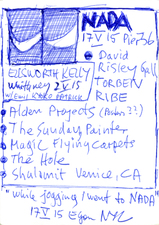 NADA
17 V 15 Pier 36
David
Risley Gall
TORBEN
RIBE
ELLSWORTH KELLY
Whitney 2 V 15
Alden Projects
The Sunday Painter
Magic Flying Carpets
The Hole
Shalamit Venice, CA
"while jogging I went to NADA"
17 V 15 Egon NYC